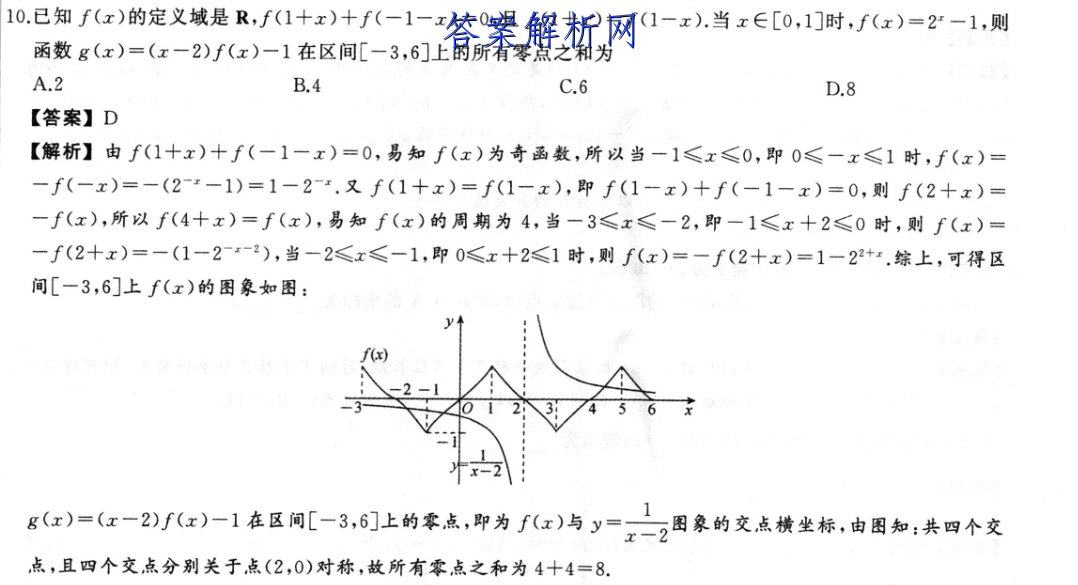 10.已知 f(x)的定义域是 R,f(1+x)+f(-1-x)=0,且 f(1+x)=f(1-x).当 x∈[0,1]时,f(x)=2ˣ-1,则
答案解析网
函数 g(x)=(x-2)f(x)-1 在区间[-3,6]上的所有零点之和为
A.2 B.4 C.6 D.8
【答案】D
【解析】由 f(1+x)+f(-1-x)=0,易知 f(x)为奇函数,所以当-1⩽x⩽0,即 0⩽-x⩽1 时,f(x)=
-f(-x)=-(2⁻ˣ-1)=1-2⁻ˣ.又 f(1+x)=f(1-x),即 f(1-x)+f(-1-x)=0,则 f(2+x)=
-f(x),所以 f(4+x)=f(x),易知 f(x)的周期为 4,当-3⩽x⩽-2,即-1⩽x+2⩽0 时,则 f(x)=
-f(2+x)=-(1-2⁻ˣ⁻²),当-2⩽x⩽-1,即 0⩽x+2⩽1 时,则 f(x)=-f(2+x)=1-2²⁺ˣ.综上,可得区
间[-3,6]上 f(x)的图象如图:
y
f(x)
-2 -1
-3 O 1 2 3 4 5 6 x
-1
y=1/(x-2)
g(x)=(x-2)f(x)-1 在区间[-3,6]上的零点,即为 f(x)与 y=1/(x-2)图象的交点横坐标,由图知:共四个交
点,且四个交点分别关于点(2,0)对称,故所有零点之和为 4+4=8.